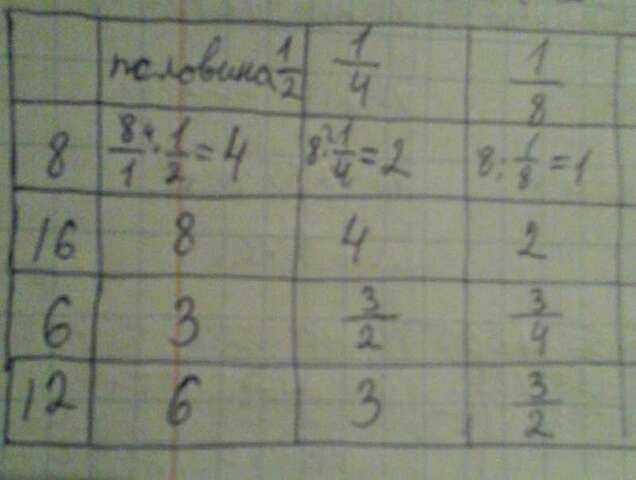 половина 1/2 1/4 1/8
8 8/1 4 · 1/2 = 4 8 2 · 1/4 = 2 8 · 1/8 = 1
16 8 4 2
6 3 3/2 3/4
12 6 3 3/2